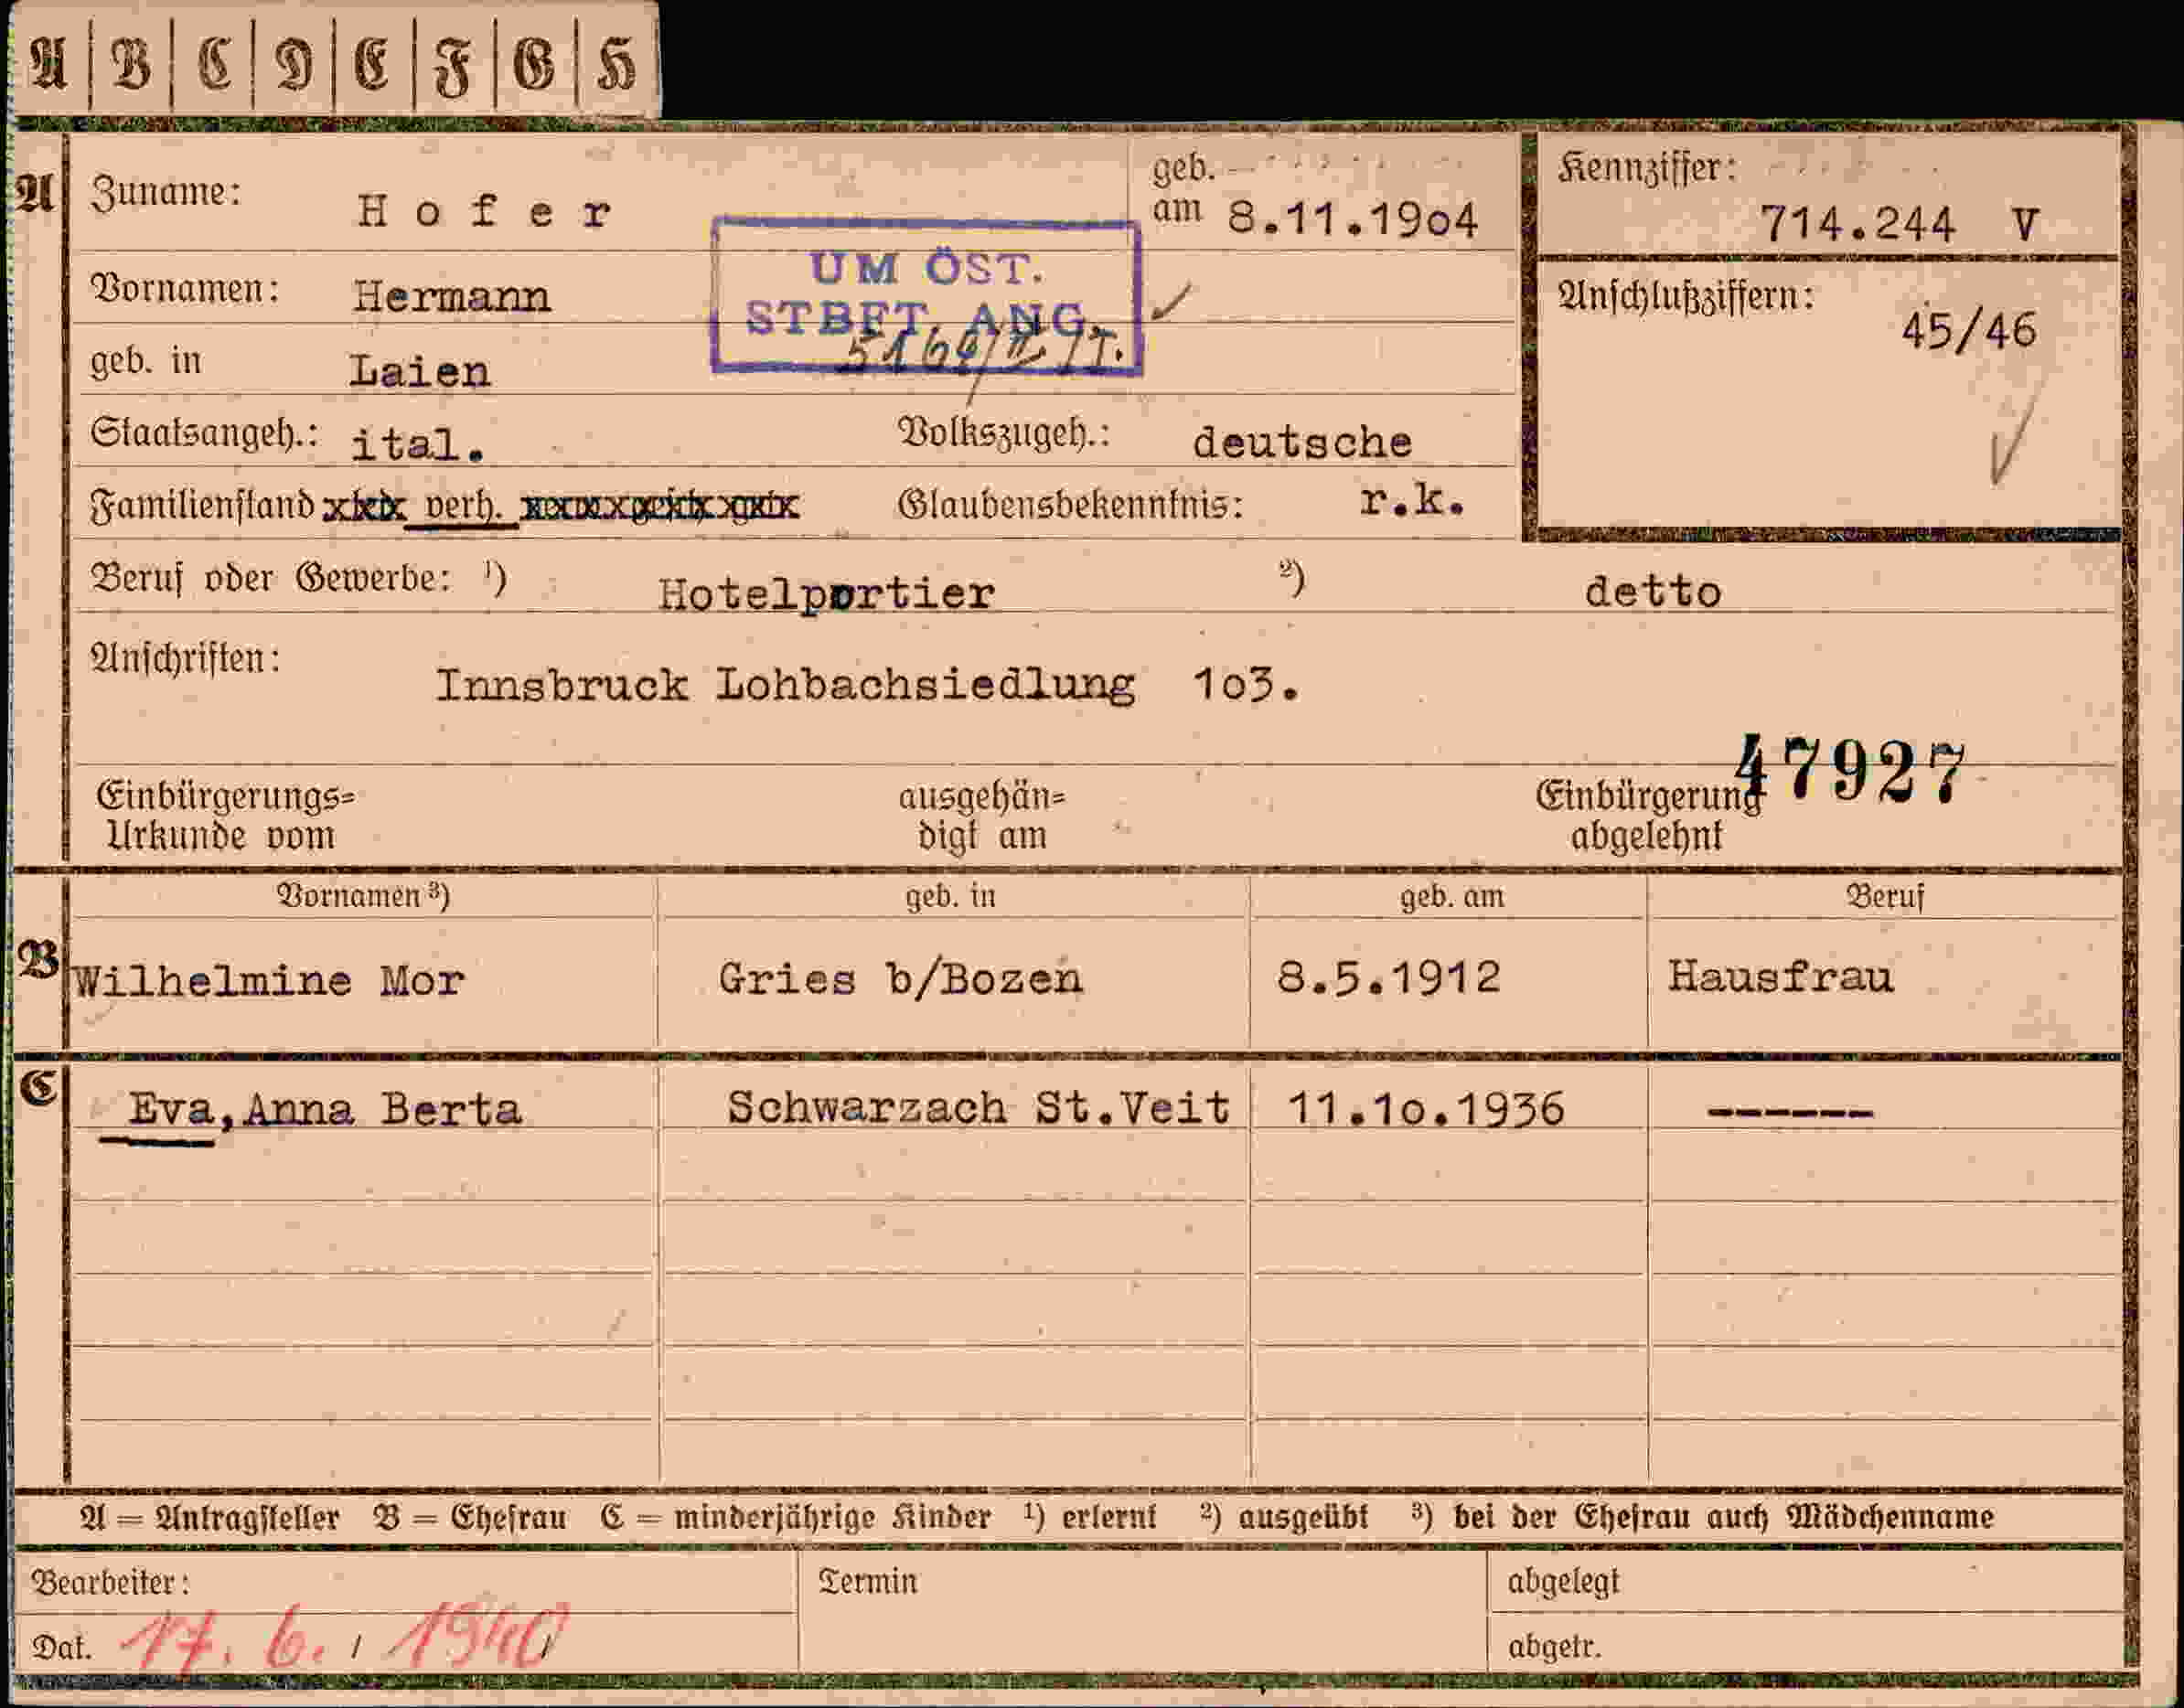 A B C D E F G H
A Zuname: Hofer geb. am 8.11.19o4 Kennziffer: 714.244 V
UM ÖST.
STBFT. ANG.
Vornamen: Hermann Anschlußziffern: 45/46
geb. in Laien
Staatsangeh.: ital. Volkszugeh.: deutsche
Familienstand verh. Glaubensbekenntnis: r.k.
Beruf oder Gewerbe: 1) Hotelportier 2) detto
Anschriften: Innsbruck Lohbachsiedlung 1o3.
47927
Einbürgerungs= ausgehän= Einbürgerung
Urkunde vom digt am abgelehnt
Vornamen 3) geb. in geb. am Beruf
B Wilhelmine Mor Gries b/Bozen 8.5.1912 Hausfrau
C Eva,Anna Berta Schwarzach St.Veit 11.1o.1936 ------
A = Antragsteller B = Ehefrau C = minderjährige Kinder 1) erlernt 2) ausgeübt 3) bei der Ehefrau auch Mädchenname
Bearbeiter: Termin abgelegt
Dat. 17. 6. 1940 abgetr.